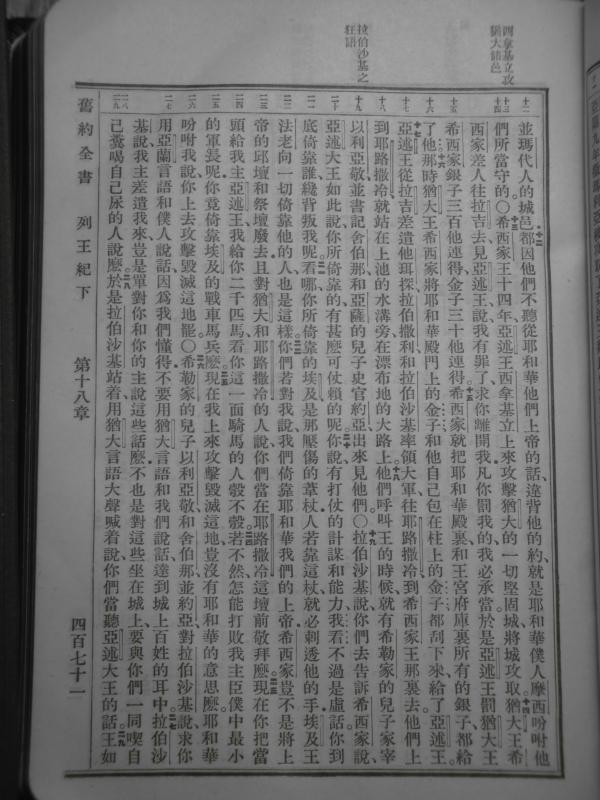 西拿基立攻
猶大諸邑
拉伯沙基之
狂語
並瑪代人的城邑都因他們不聽從耶和華他們上帝的話違背他的約就是耶和華僕人摩西吩咐他
們所當守的〇希西家王十四年亞述王西拿基立上來攻擊猶大的一切堅固城將城攻取猶大王希
西家差人往拉吉去見亞述王說我有罪了求你離開我凡你罰我的我必承當於是亞述王罰猶大王
希西家銀子三百他連得金子三十他連得希西家就把耶和華殿裏和王宮府庫裏所有的銀子都給
了他那時猶大王希西家將耶和華殿門上的金子和他自己包在柱上的金子都刮下來給了亞述王
亞述王從拉吉差遣他珥探拉伯撒利和拉伯沙基率領大軍往耶路撒冷到希西家王那裏去他們上
到耶路撒冷就站在上池的水溝旁在漂布地的大路上他們呼叫王的時候就有希勒家的兒子家宰
以利亞敬並書記舍伯那和亞薩的兒子史官約亞出來見他們〇拉伯沙基說你們去告訴希西家說
亞述大王如此說你所倚靠的有甚麽可仗賴的呢你說有打仗的計謀和能力我看不過是虛話你到
底倚靠誰纔背叛我呢看哪你所倚靠的埃及是那壓傷的葦杖人若靠這杖就必刺透他的手埃及王
法老向一切倚靠他的人也是這樣你們若對我說我們倚靠耶和華我們的上帝希西家豈不是將上
帝的邱壇和祭壇廢去且對猶大和耶路撒冷的人說你們當在耶路撒冷這壇前敬拜麽現在你把當
頭給我主亞述王我給你二千匹馬看你這一面騎馬的人彀不彀若不然怎能打敗我主臣僕中最小
的軍長呢你竟倚靠埃及的戰車馬兵麽現在我上來攻擊毀滅這地豈沒有耶和華的意思麽耶和華
吩咐我說你上去攻擊毀滅這地罷〇希勒家的兒子以利亞敬和舍伯那並約亞對拉伯沙基說求你
用亞蘭言語和僕人說話因為我們懂得不要用猶大言語和我們說話達到城上百姓的耳中拉伯沙
基說我主差遣我來豈是單對你和你的主說這些話麽不也是對這些坐在城上要與你們一同喫自
己糞喝自己尿的人說麽於是拉伯沙基站着用猶大言語大聲喊着說你們當聽亞述大王的話王如
舊約全書 列王紀下 第十八章 四百七十一